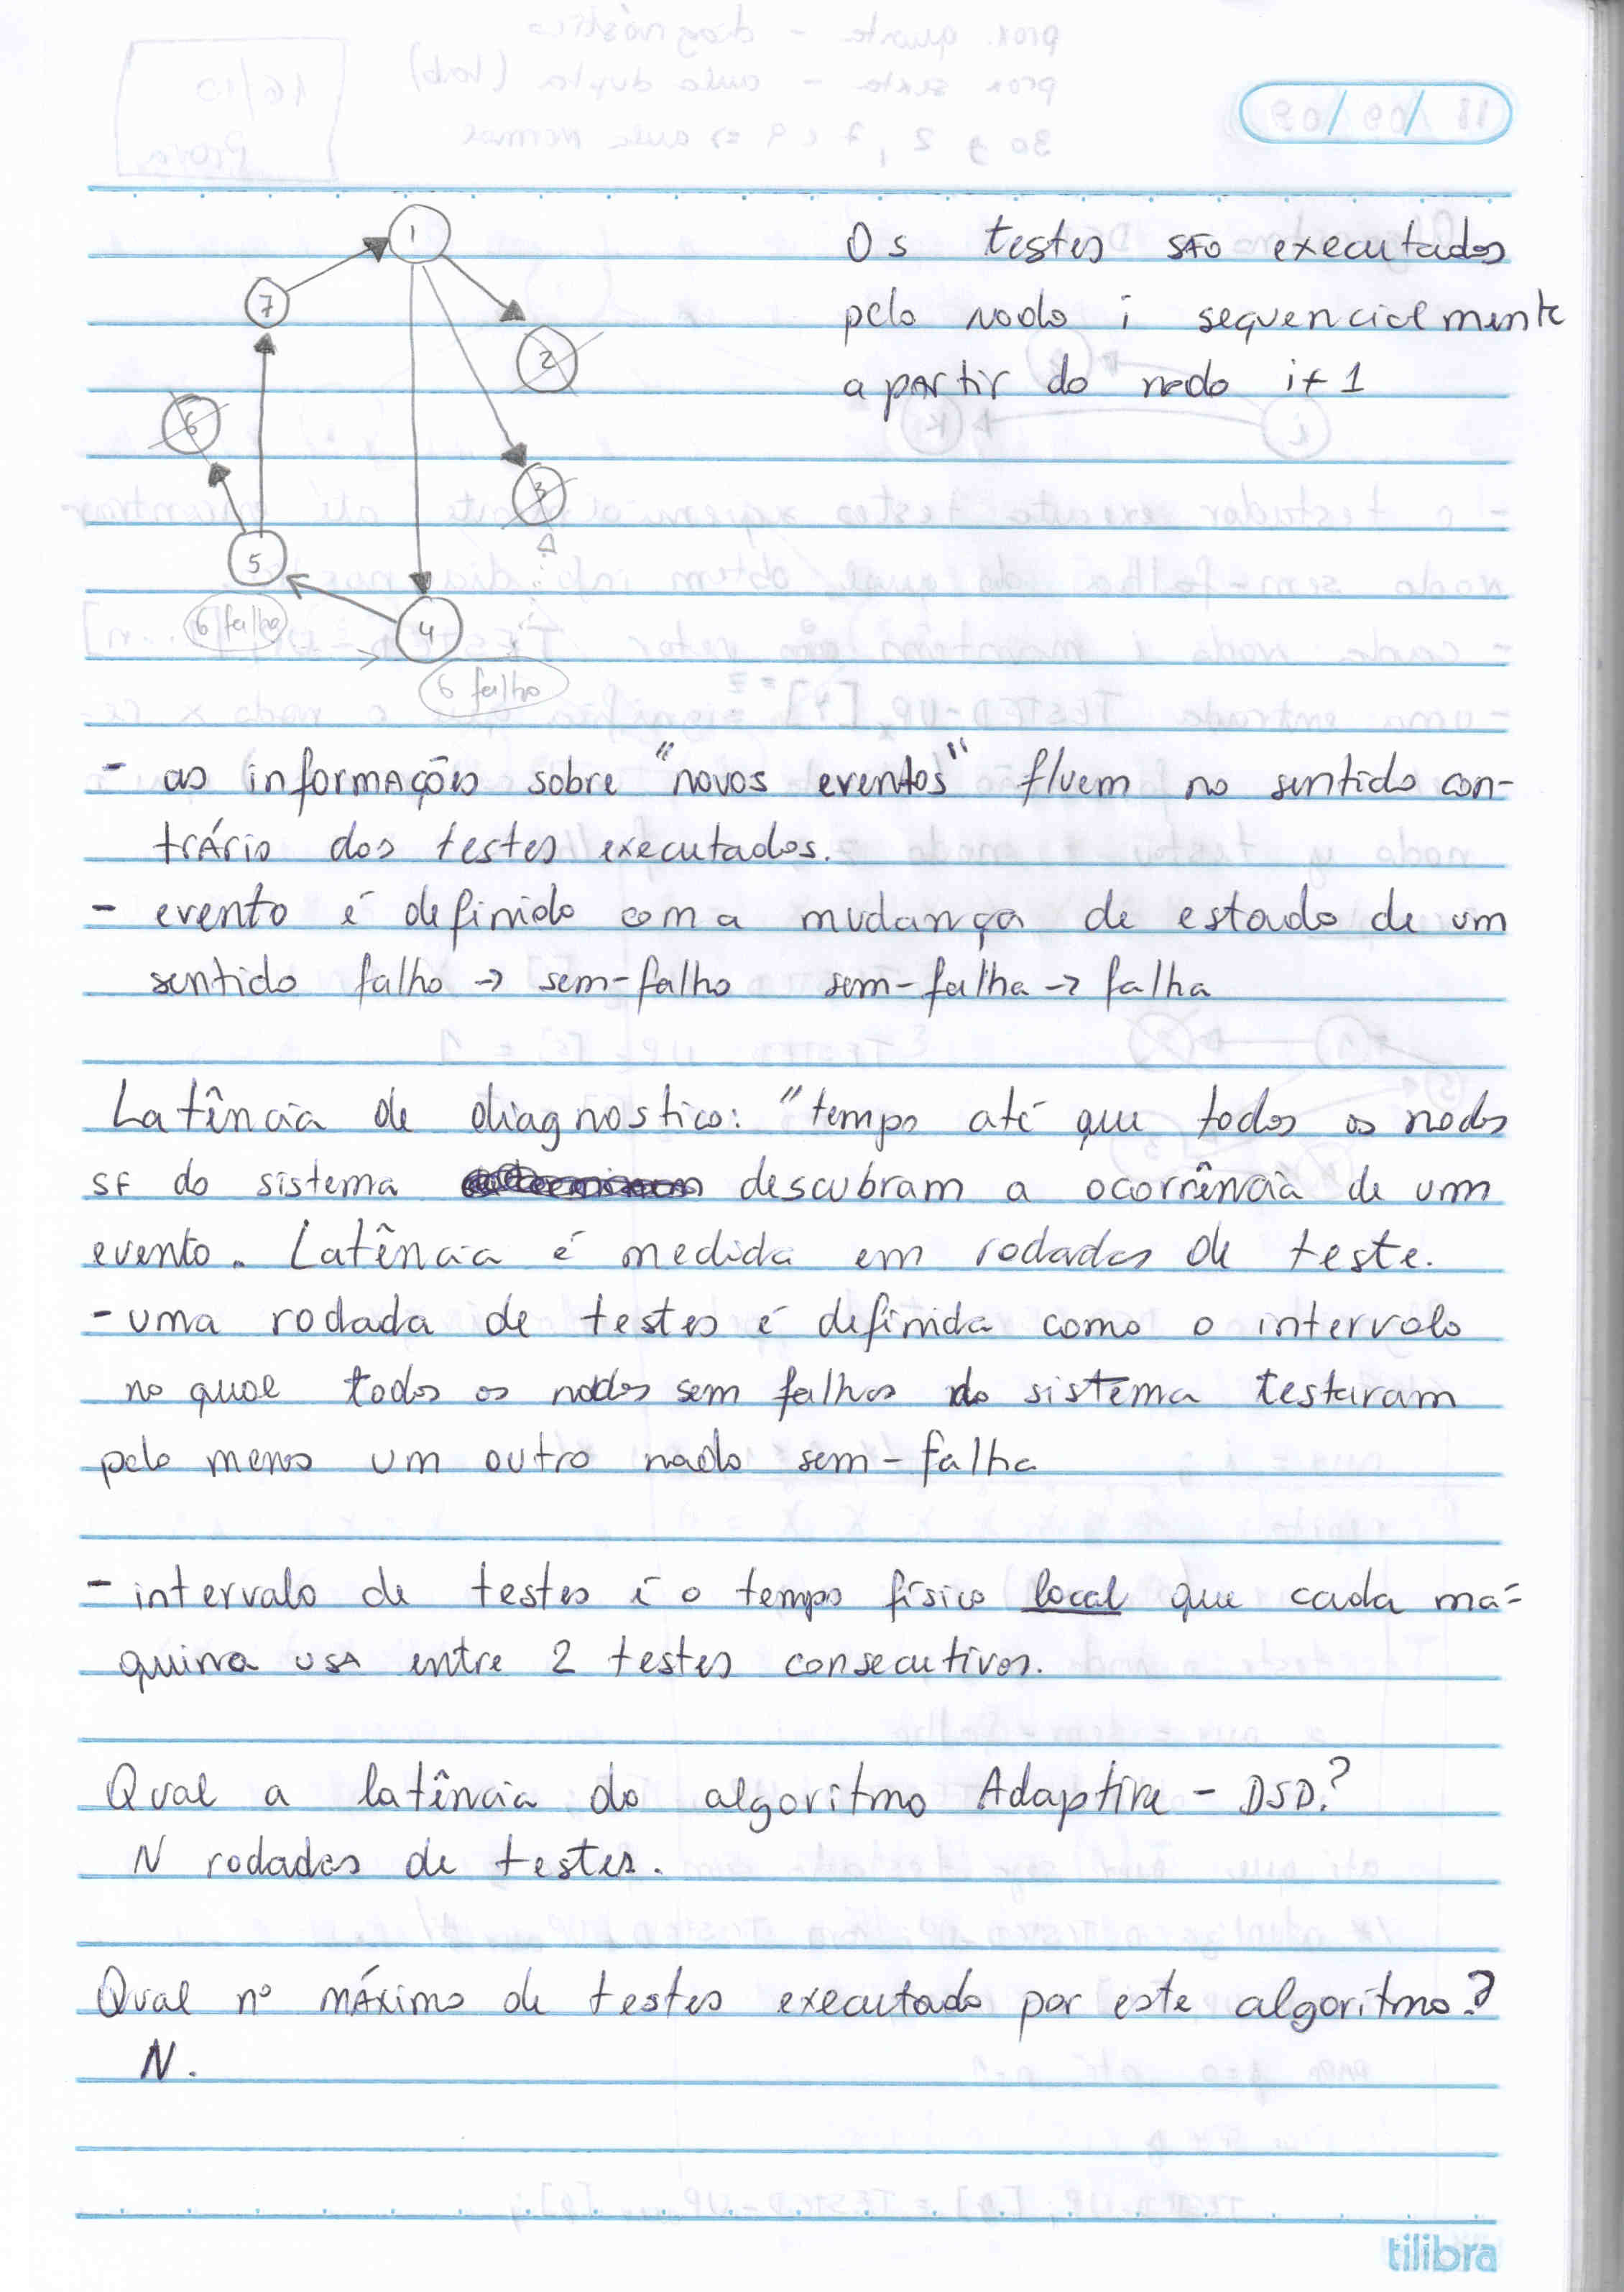 1
7
2
6
3
5
4
6 falho
6 falho
Os testes são executados
pelo nodo i sequencialmente
a partir do nodo i+1
- as informações sobre "novos eventos" fluem no sentido con-
trário dos testes executados.
- evento é definido com a mudança de estado de um
sentido falho → sem-falho sem-falha → falha
Latência de diagnostico: "tempo até que todos os nodos
SF do sistema descubram a ocorrência de um
evento. Latência é medida em rodadas de teste.
- uma rodada de testes é definida como o intervalo
no qual todos os nodos sem falhas do sistema testaram
pelo menos um outro nodo sem-falha
- intervalo de testes é o tempo físico local que cada má-
quina usa entre 2 testes consecutivos.
Qual a latência do algoritmo Adaptive - DSD?
N rodadas de testes.
Qual nº máximo de testes executado por este algoritmo?
N.
tilibra